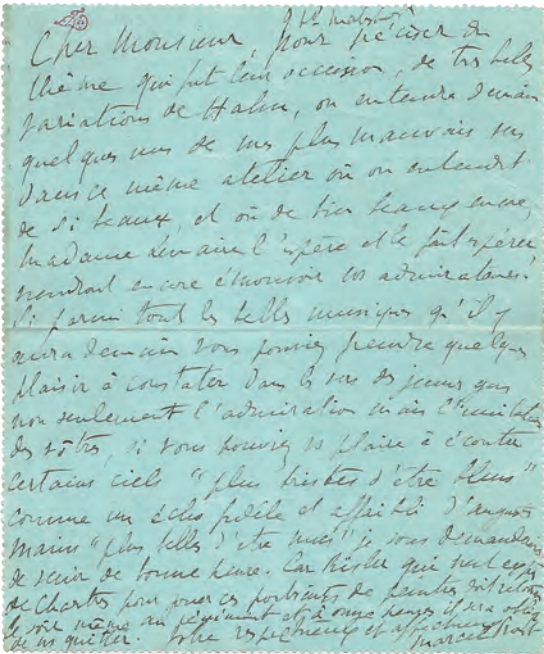 Cher Monsieur, pour préciser du
thème qui fut leur occasion, de très belles
variations de Hahn, on entendra demain
quelques uns de mes plus mauvais vers
dans ce même atelier où on entendit
de si beaux, et où de bien beaux encore,
Madame Lemaire l'espère et le fait espérer
viendront encore émouvoir vos admirateurs.
Si parmi tout les belles musiques qu'il y
aura demain vous pouviez prendre quelque
plaisir à constater dans les vers des jeunes gens
non seulement l'admiration mais l'imitation
des vôtres, si vous pouviez vs plaire à écouter
certains ciels "plus tristes d'être bleus"
comme un écho fidèle et affaibli d'augustes
mains "plus belles d'être nues" je vous demanderais
de venir de bonne heure. Car Risler qui vient exprès
de Chartres pour jouer ces portraits de peintres doit retourner
le soir même au régiment et à onze heures il sera obligé
de ns quitter. Votre respectueux et affectueux
Marcel Proust